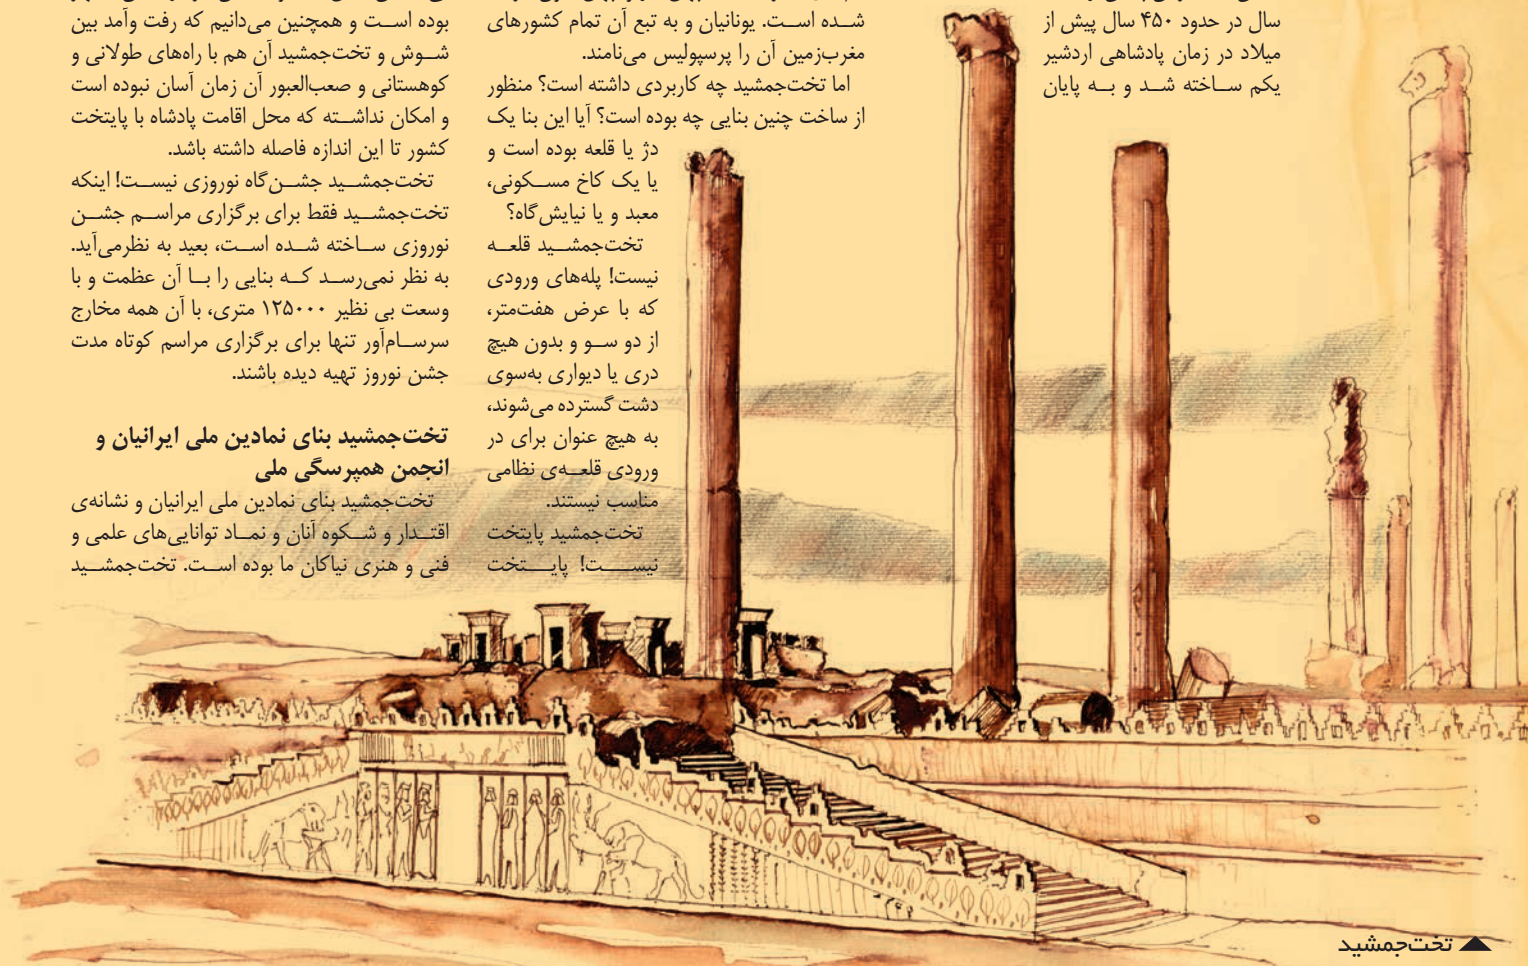 سال در حدود ۴۵۰ سال پیش از
میلاد در زمان پادشاهی اردشیر
یکم ساخته شد و به پایان
شده است. یونانیان و به تبع آن تمام کشورهای
مغرب‌زمین آن را پرسپولیس می‌نامند.
اما تخت‌جمشید چه کاربردی داشته است؟ منظور
از ساخت چنین بنایی چه بوده است؟ آیا این بنا یک
دژ یا قلعه بوده است و
یا یک کاخ مسکونی،
معبد و یا نیایش‌گاه؟
تخت‌جمشید قلعه
نیست! پله‌های ورودی
که با عرض هفت‌متر،
از دو سو و بدون هیچ
دری یا دیواری به‌سوی
دشت گسترده می‌شوند،
به هیچ عنوان برای در
ورودی قلعه‌ی نظامی
مناسب نیستند.
تخت‌جمشید پایتخت
نیست! پایتخت
بوده است و همچنین می‌دانیم که رفت وآمد بین
شوش و تخت‌جمشید آن هم با راه‌های طولانی و
کوهستانی و صعب‌العبور آن زمان آسان نبوده است
و امکان نداشته که محل اقامت پادشاه با پایتخت
کشور تا این اندازه فاصله داشته باشد.
تخت‌جمشید جشن‌گاه نوروزی نیست! اینکه
تخت‌جمشید فقط برای برگزاری مراسم جشن
نوروزی ساخته شده است، بعید به نظرمی‌آید.
به نظر نمی‌رسد که بنایی را با آن عظمت و با
وسعت بی نظیر ۱۲۵۰۰۰ متری، با آن همه مخارج
سرسام‌آور تنها برای برگزاری مراسم کوتاه مدت
جشن نوروز تهیه دیده باشند.
تخت‌جمشید بنای نمادین ملی ایرانیان و
انجمن همپرسگی ملی
تخت‌جمشید بنای نمادین ملی ایرانیان و نشانه‌ی
اقتدار و شکوه آنان و نماد توانایی‌های علمی و
فنی و هنری نیاکان ما بوده است. تخت‌جمشید
تخت‌جمشید